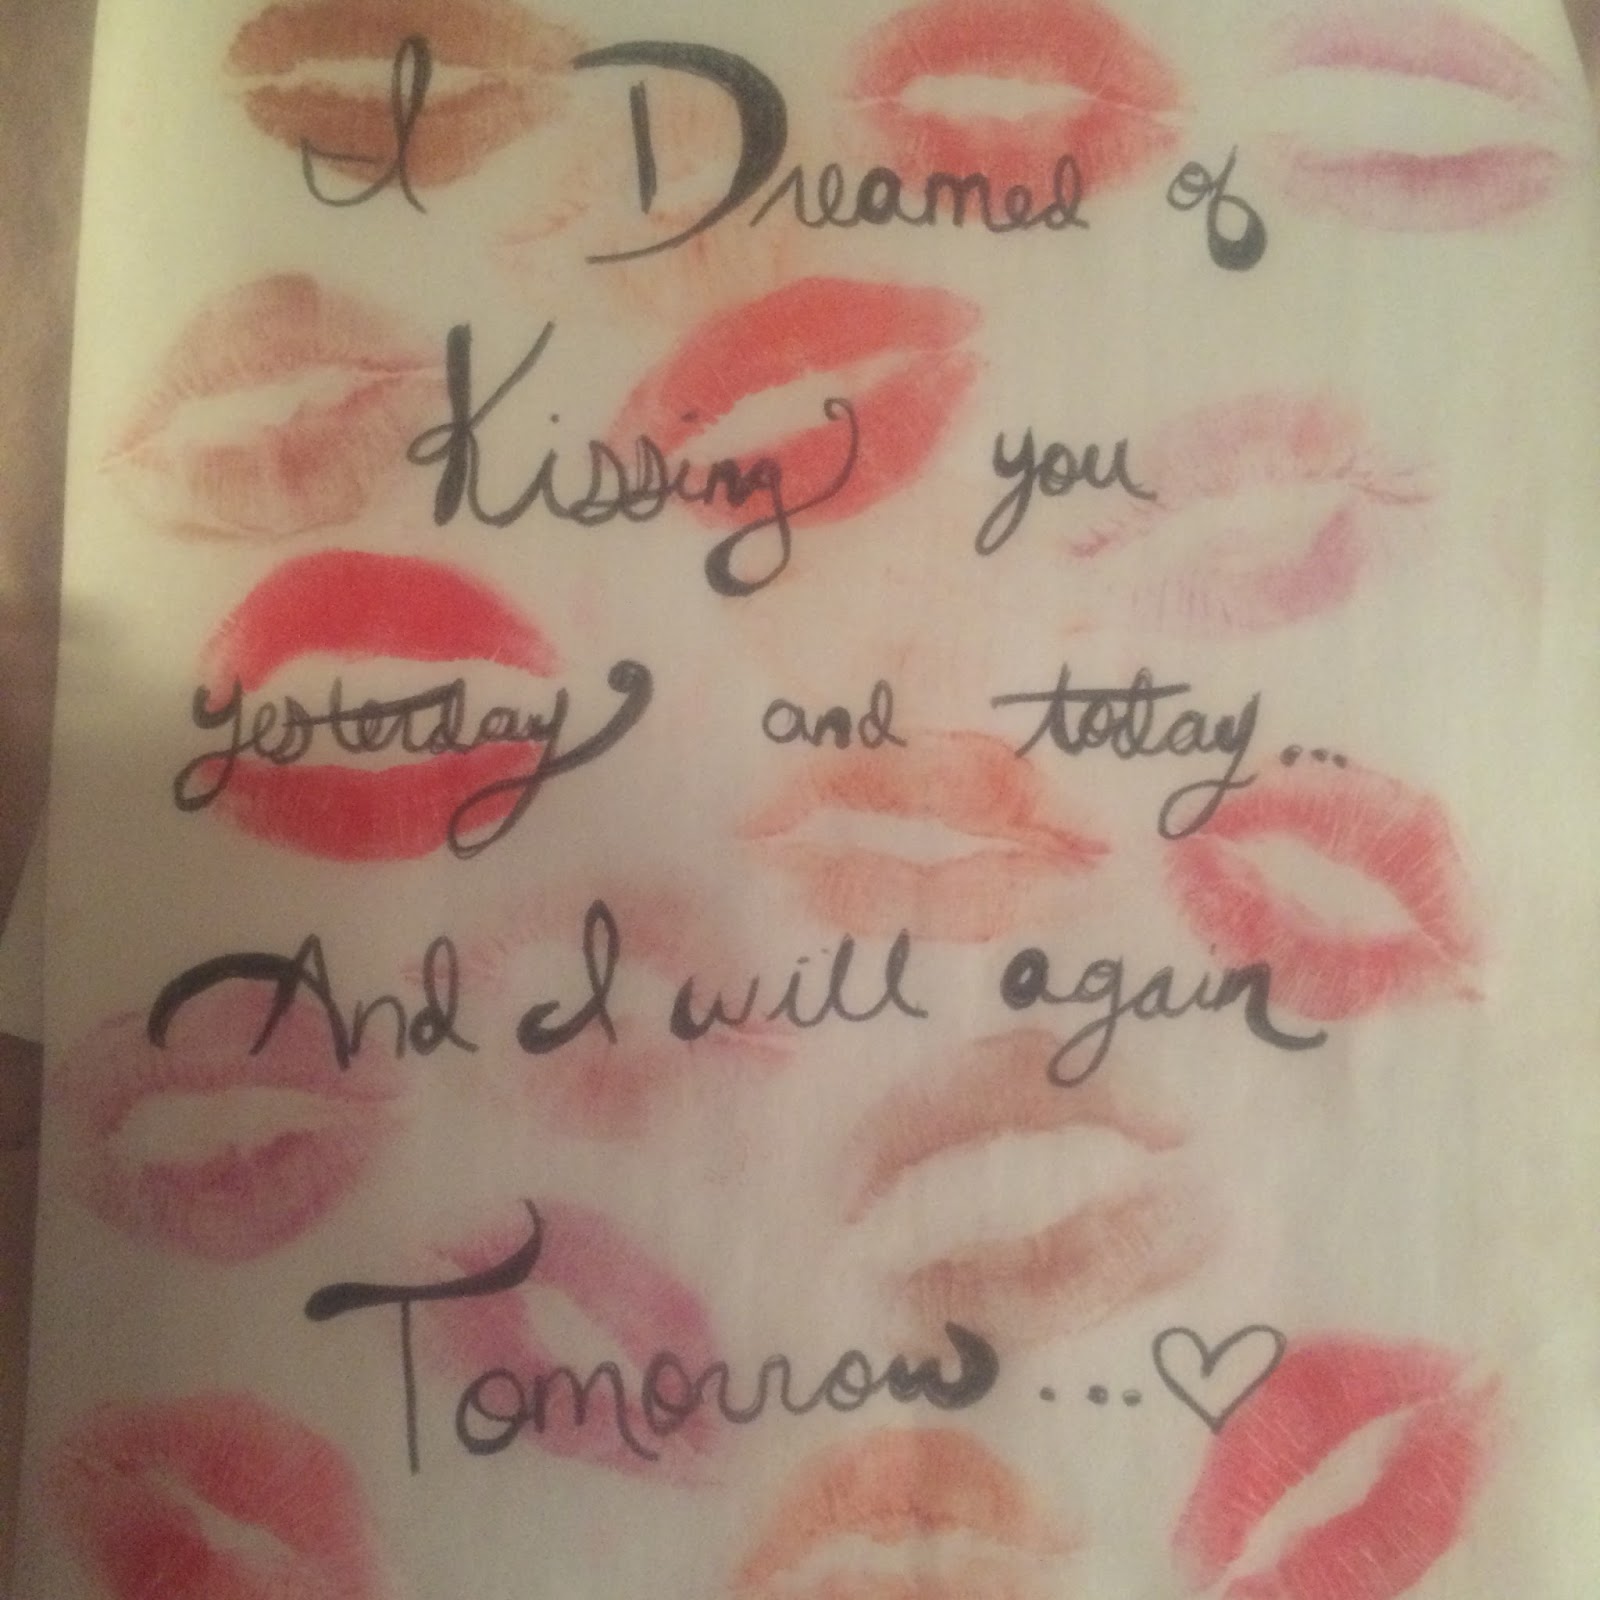 I Dreamed of
Kissing you
yesterday and today...
And I will again
Tomorrow...